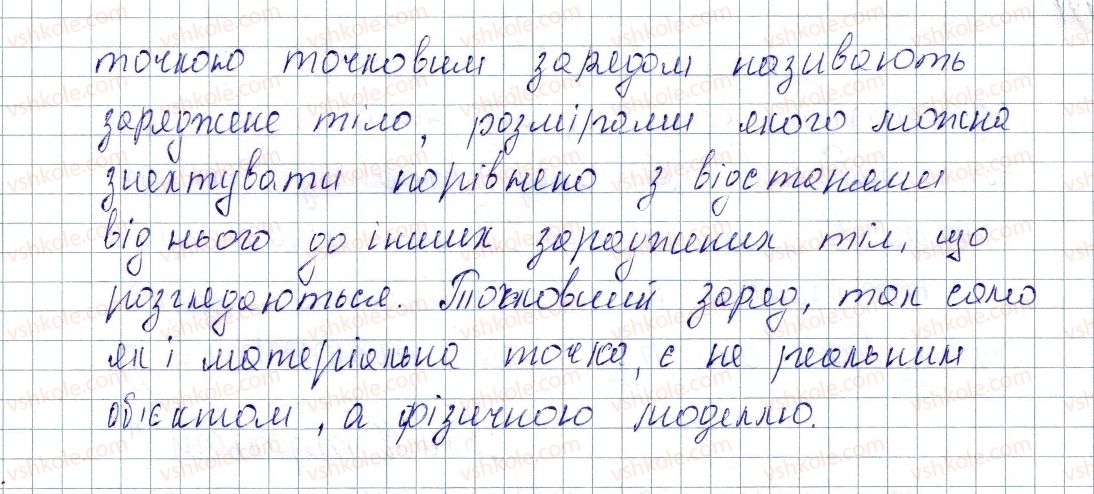 точкою точковим зарядом називають
заряджене тіло, розмірами якого можна
знехтувати порівнено з відстанями
від нього до інших заряджених тіл, що
розглядаються. Точковий заряд, так само
як і матеріальна точка, є не реальним
об'єктом, а фізичною моделлю.